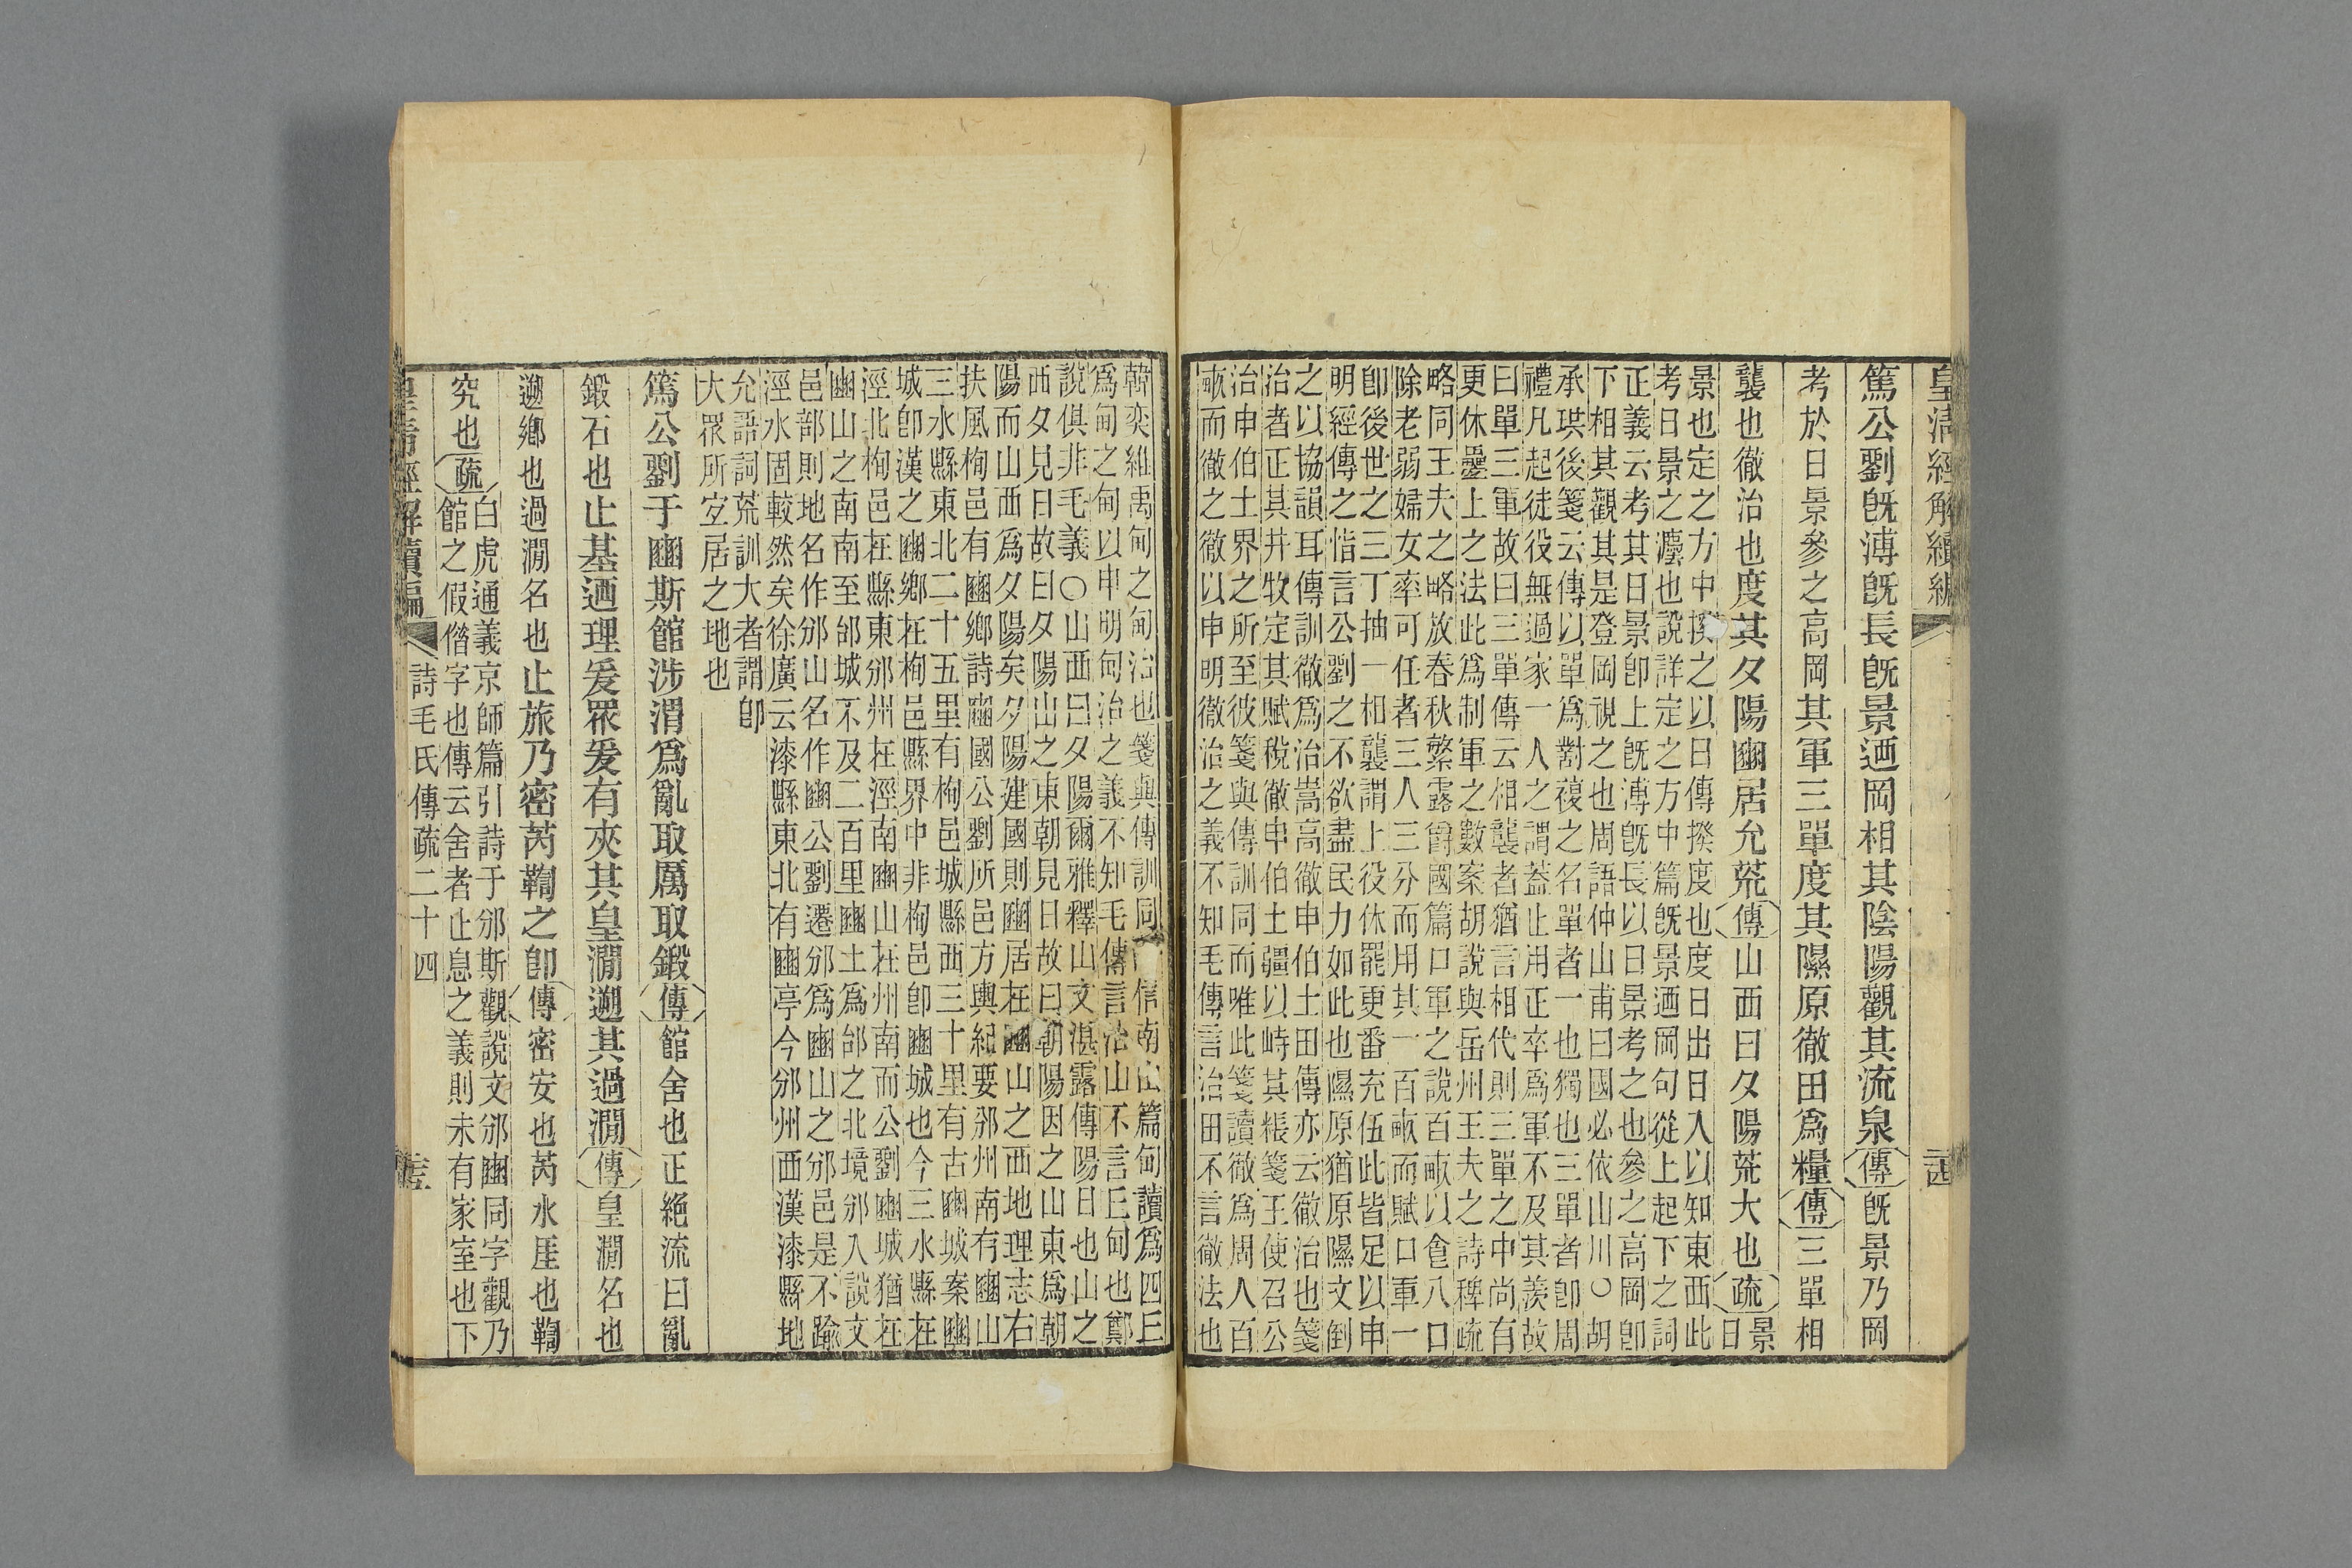 皇清經解續編
篤公劉旣溥旣長旣景迺岡相其陰陽觀其流泉傳旣景乃岡
考於日景參之高岡其軍三單度其隰原徹田爲糧傳三單相
襲也徹治也度其夕陽豳居允荒傳山西曰夕陽荒大也疏景日
景也定之方中揆之以日傳揆度也度日出日入以知東西此
考日景之灋也說詳定之方中篇旣景迺岡句從上起下之詞
正義云考其日景卽上旣溥旣長以日景考之也參之高岡卽
下相其觀其是登岡視之也周語仲山甫曰國必依山川○胡
承珙後箋云傳以單爲襲複之名單者一也獨也三單者卽周
禮凡起徒役無過家一人之謂蓋止用正卒爲軍不及其羨故
曰單三軍故曰三單傳云相襲者猶言相代則三單之中尚有
更休疊上之法此爲制軍之數案胡說與岳州王夫之詩稗疏
略同王夫之略放春秋繁露爵國篇口軍之說百畝以食八口
除老弱婦女率可任者三人三分而用其一百畝而賦口軍一
卽後世之三丁抽一相襲謂上役休罷更番充伍此皆足以申
明經傳之恉言公劉之不欲盡民力如此也隰原猶原隰文倒
之以協韻耳傳訓徹爲治嵩高徹申伯土田傳亦云徹治也箋
治者正其井牧定其賦稅徹申伯土疆以峙其粻箋王使召公
治申伯土界之所至彼箋與傳訓同而唯此箋讀徹爲周人百
畝而徹之徹以申明徹治之義不知毛傳言治田不言徹法也
韓奕維禹甸之甸治也箋與傳訓同信南山篇甸讀爲四丘
爲甸之甸以申明甸治之義不知毛傳言治山不言丘甸也鄭
說俱非毛義○山西曰夕陽爾雅釋山文湛露傳陽日也山之
西夕見日故曰夕陽山之東朝見日故曰朝陽因之山東爲朝
陽而山西爲夕陽矣夕陽建國則豳居在豳山之西地理志右
扶風栒邑有豳鄉詩豳國公劉所邑方輿紀要邠州南有豳山
三水縣東北二十五里有栒邑城縣西三十里有古豳城案豳
城卽漢之豳鄉在栒邑縣界中非栒邑卽豳城也今三水縣在
涇北栒邑在縣東邠州在涇南豳山在州南而公劉豳城猶在
豳山之南南至邰城不及二百里豳土爲邰之北境邠入說文
邑部則地名作邠山名作豳公劉遷邠爲豳山之邠邑是不踰
涇水固較然矣徐廣云漆縣東北有豳亭今邠州西漢漆縣地
允語詞荒訓大者謂卽
大眾所定居之地也
篤公劉于豳斯館涉渭爲亂取厲取鍛傳館舍也正絕流曰亂
鍛石也止基迺理爰眾爰有夾其皇澗遡其過澗傳皇澗名也
遡鄉也過澗名也止旅乃密芮鞫之卽傳密安也芮水厓也鞫
究也疏白虎通義京師篇引詩于邠斯觀說文邠豳同字觀乃
館之假借字也傳云舍者止息之義則未有家室也下
皇清經解續編 詩毛氏傳疏二十四